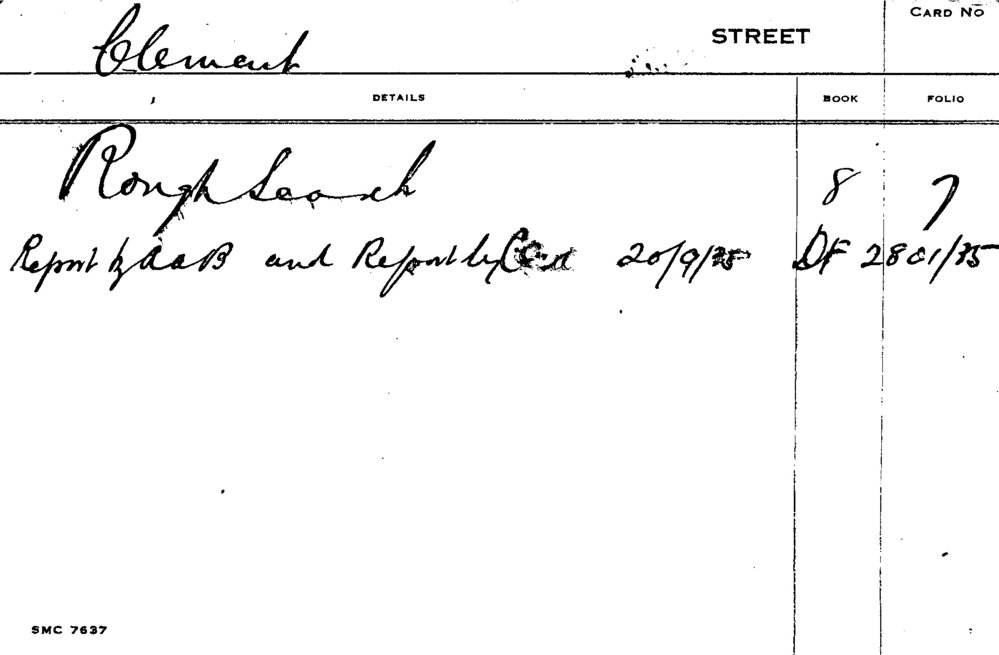 Clement STREET CARD NO
DETAILS BOOK FOLIO
Rough Search 8 7
Report by A a B and Report by 20/9/35 DF 2801/35
SMC 7637